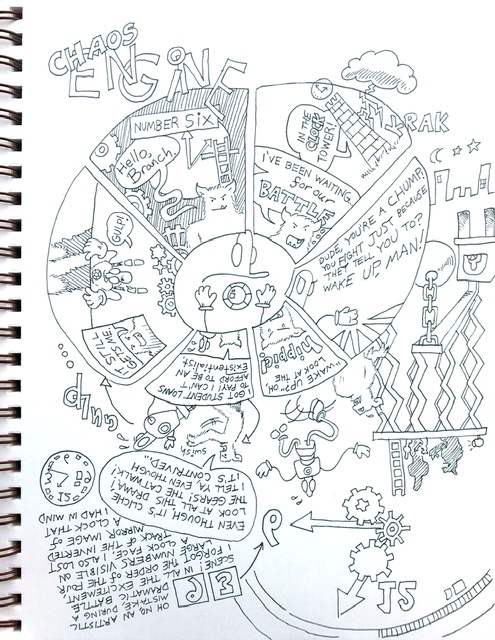 CHAOS
ENGINE
NUMBER SIX
Hello,
Branch.
IN THE
CLOCK
TOWER!
KRAK
I'VE BEEN WAITING
for our
BATTLE!
DUDE, YOU'RE A CHUMP,
YOU FIGHT JUST BECAUSE
THEY TELL YOU TO?
WAKE UP MAN!
"WAKE UP?" OH
LOOK THE
hippid!
I GOT STUDENT LOANS
TO PAY! I CAN'T
AFFORD TO BE AN
Existentialist
swish
GULP!
IT STILL
GETS ME
GULP
EVEN THOUGH IT'S CLICHE
LOOK AT ALL THIS DRAMA!
THE GEARS! THE CATWALK!
I TELL YA EVEN THOUGH
IT'S CONTRIVED...
OH NO, AN ARTISTIC
MISTAKE, DURING A
DRAMATIC BATTLE
SCENE! IN ALL THE EXCITEMENT
I FORGOT THE ORDER OF THE FOUR
LARGE NUMBERS VISIBLE ON
A CLOCK FACE. I ALSO LOST
TRACK OF THE INVERTED
MIRROR IMAGE OF
A CLOCK THAT
I HAD IN MIND